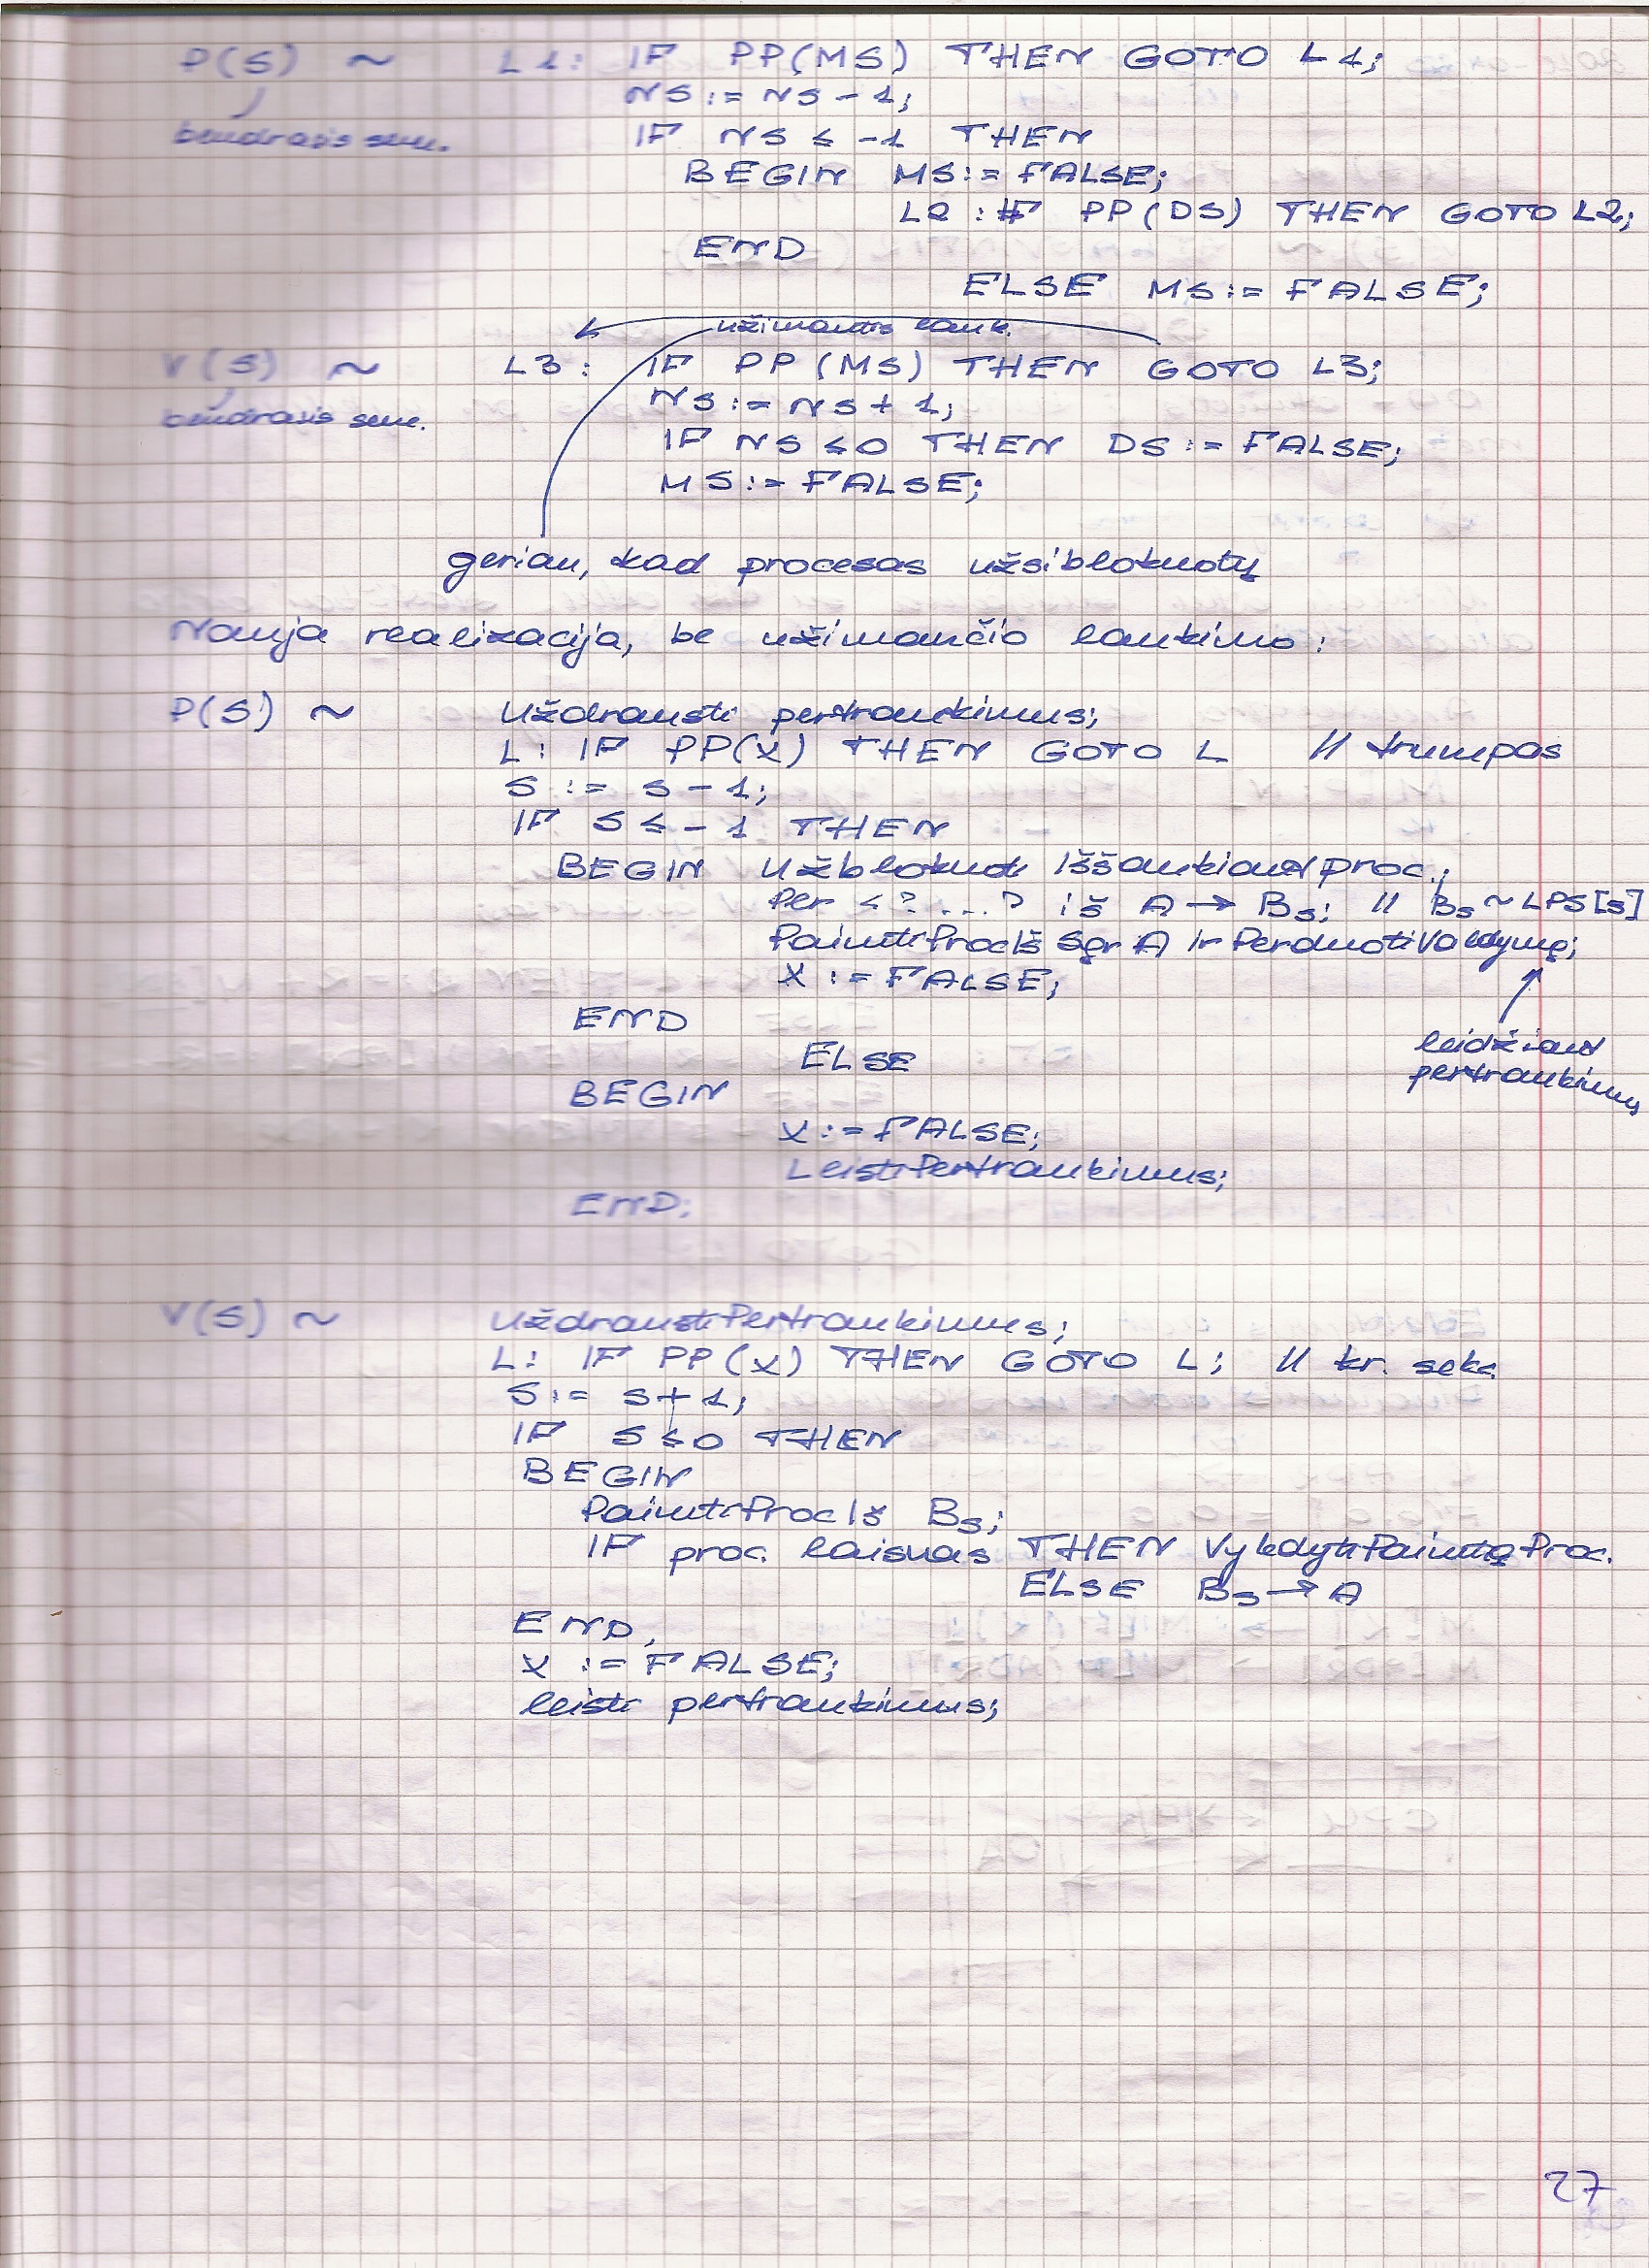 P(S) ~ L1: IF PP(MS) THEN GOTO L1;
NS := NS - 1;
bendrasis sem. IF NS ≤ -1 THEN
BEGIN MS := FALSE;
L2 : IF PP(DS) THEN GOTO L2;
END
ELSE MS := FALSE;
užimantis lauk.
V(S) ~ L3: IF PP(MS) THEN GOTO L3;
NS := NS + 1;
bendrasis sem.
IF NS ≤ 0 THEN DS := FALSE;
MS := FALSE;
geriau, kad procesas užsiblokuotų
Nauja realizacija, be užimančio laukimo:
P(S) ~ Uždrausti pertraukimus;
L: IF PP(X) THEN GOTO L // trumpas
S := S - 1;
IF S ≤ -1 THEN
BEGIN Užblokuoti Iššaukiantį proc.;
Per <?...? iš A → Bs; // Bs ~ LPS[s]
PaimtiProcIš Sąr A ir PerduotiValdymą;
X := FALSE;
END
leidžiant
pertraukimus
ELSE
BEGIN
X := FALSE;
LeistiPertraukimus;
END;
V(S) ~ UždraustiPertraukimus;
L: IF PP(X) THEN GOTO L; // kr. sekc.
S := S + 1;
IF S ≤ 0 THEN
BEGIN
PaimtiProcIš Bs;
IF proc. laisvas THEN VykdytiPaimtąProc.
ELSE Bs → A
END,
X := FALSE;
leisti pertraukimus;
27